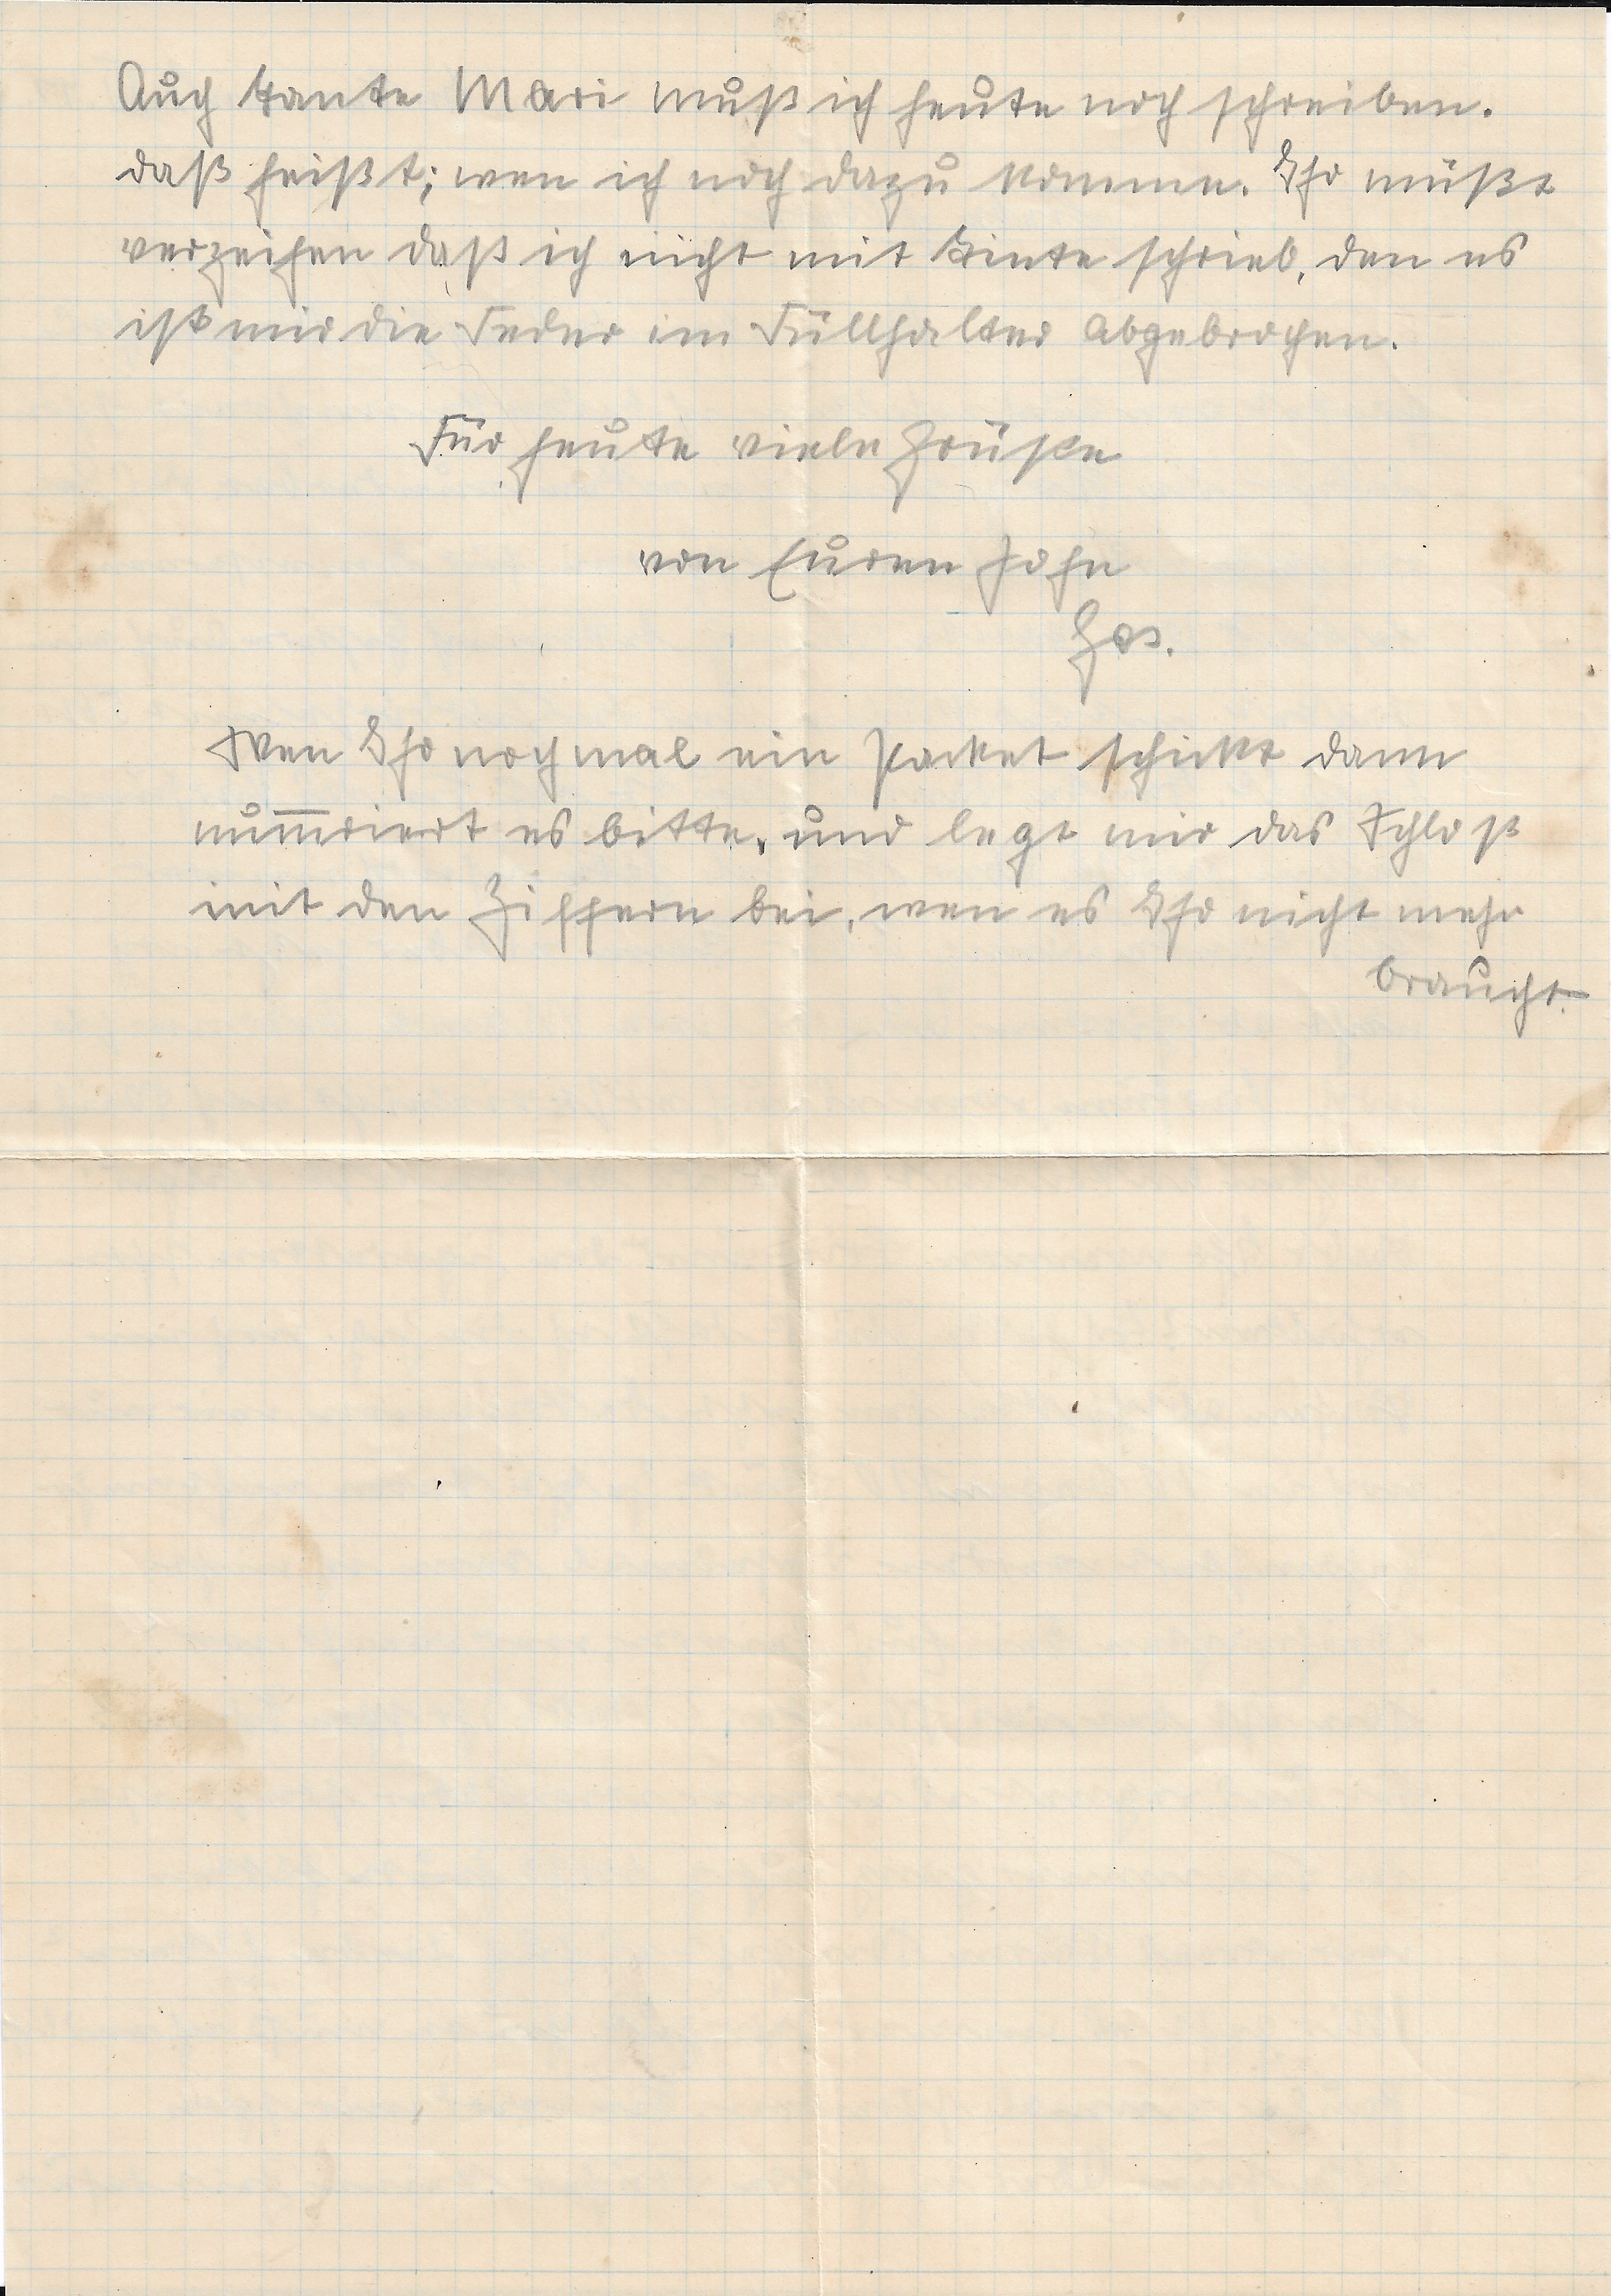 Auch Tante Mari muß ich heute noch schreiben.
daß heißt; wen ich noch dazu komme. Ihr müßt
verzeihen daß ich nicht mit Tinte schrieb, den es
ist mir die Feder im Füllhalter abgebrochen.
Für heute viele Grüße
von Euren Sohn
Wen Ihr nochmal ein Packet schickt dann
num̅eriert es bitte, und legt mir das Schloß
mit den Ziffern bei, wen es Ihr nicht mehr
braucht.